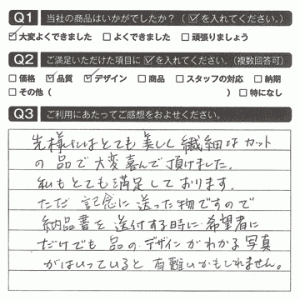 Q1 当社の商品はいかがでしたか？（☑を入れてください。）
☑大変よくできました □よくできました □頑張りましょう
Q2 ご満足いただけた項目に☑を入れてください。（複数回答可）
□価格 ☑品質 ☑デザイン □商品 □スタッフの対応 □納期
□その他（ ）□特になし
Q3 ご利用にあたってご感想をおよせください。
先様にはとても美しく繊細なカット
の品で大変喜んで頂けました。
私もとても満足しております。
ただ記念に送った物ですので
納品書を送付する時に希望者に
だけでも品のデザインがわかる写真
がはいっていると有難いかもしれません。